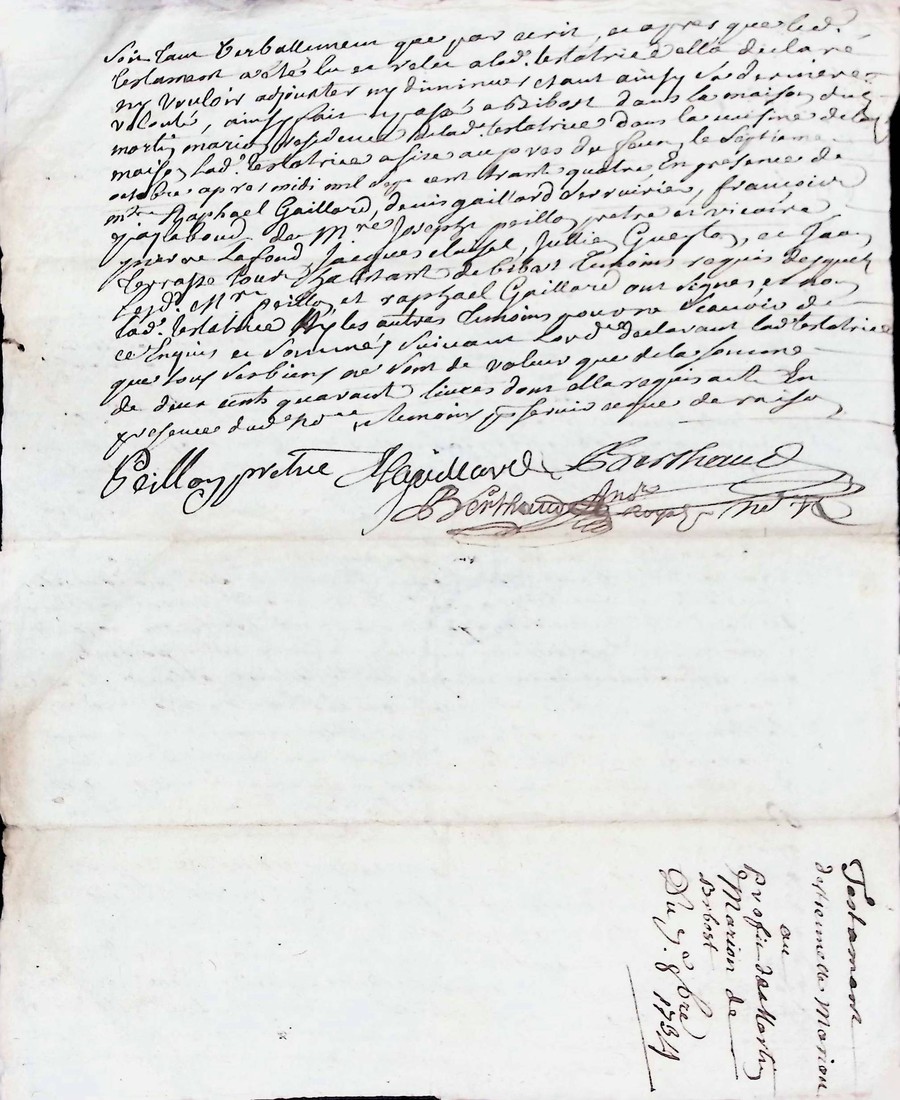 soit tant verballement que par ecrit, et apres que led.
testament a eté lu et releu a lad. testatrice ella declaré
ny vouloir adjouter ny diminuer etant ainsy sa derniere
volonté, ainsy fait et passé a Bibost dans la maison dud.
martin marion residence de lad. testatrice dans la cuisine de lad.
maison lad. testatrice assise au pres du feu, le septieme
octobre apres midi mil sept cent trant quatre, En presence de
mtre Raphael Gaillard, denis gaillard serrurier, francois
de Mre Joseph peillon pretre et vicaire
pierre Lafond, Jacques Jullien et Jean
Terrasse tous habitant de bibost temoins requis desquels
lesd. Mre peillon et raphael Gaillard ont signes et non
lad. testatrice Ny les autres temoins pour ne scavoir de
ce Enquis et sommés suivant Lord. declarant lad. testatrice
que tous ses biens ne sont de valeur que de la somme
de deux cents quarant livres dont ella requis acte En
presence dud. no.re et temoins pr servir ce que de raison
Peillon pretre R gaillard Berthaud
Berthaud
Testament
d'estiennette Marion
au
profit de Martin
Marion de
Bibost
Du 7. 8bre 1734